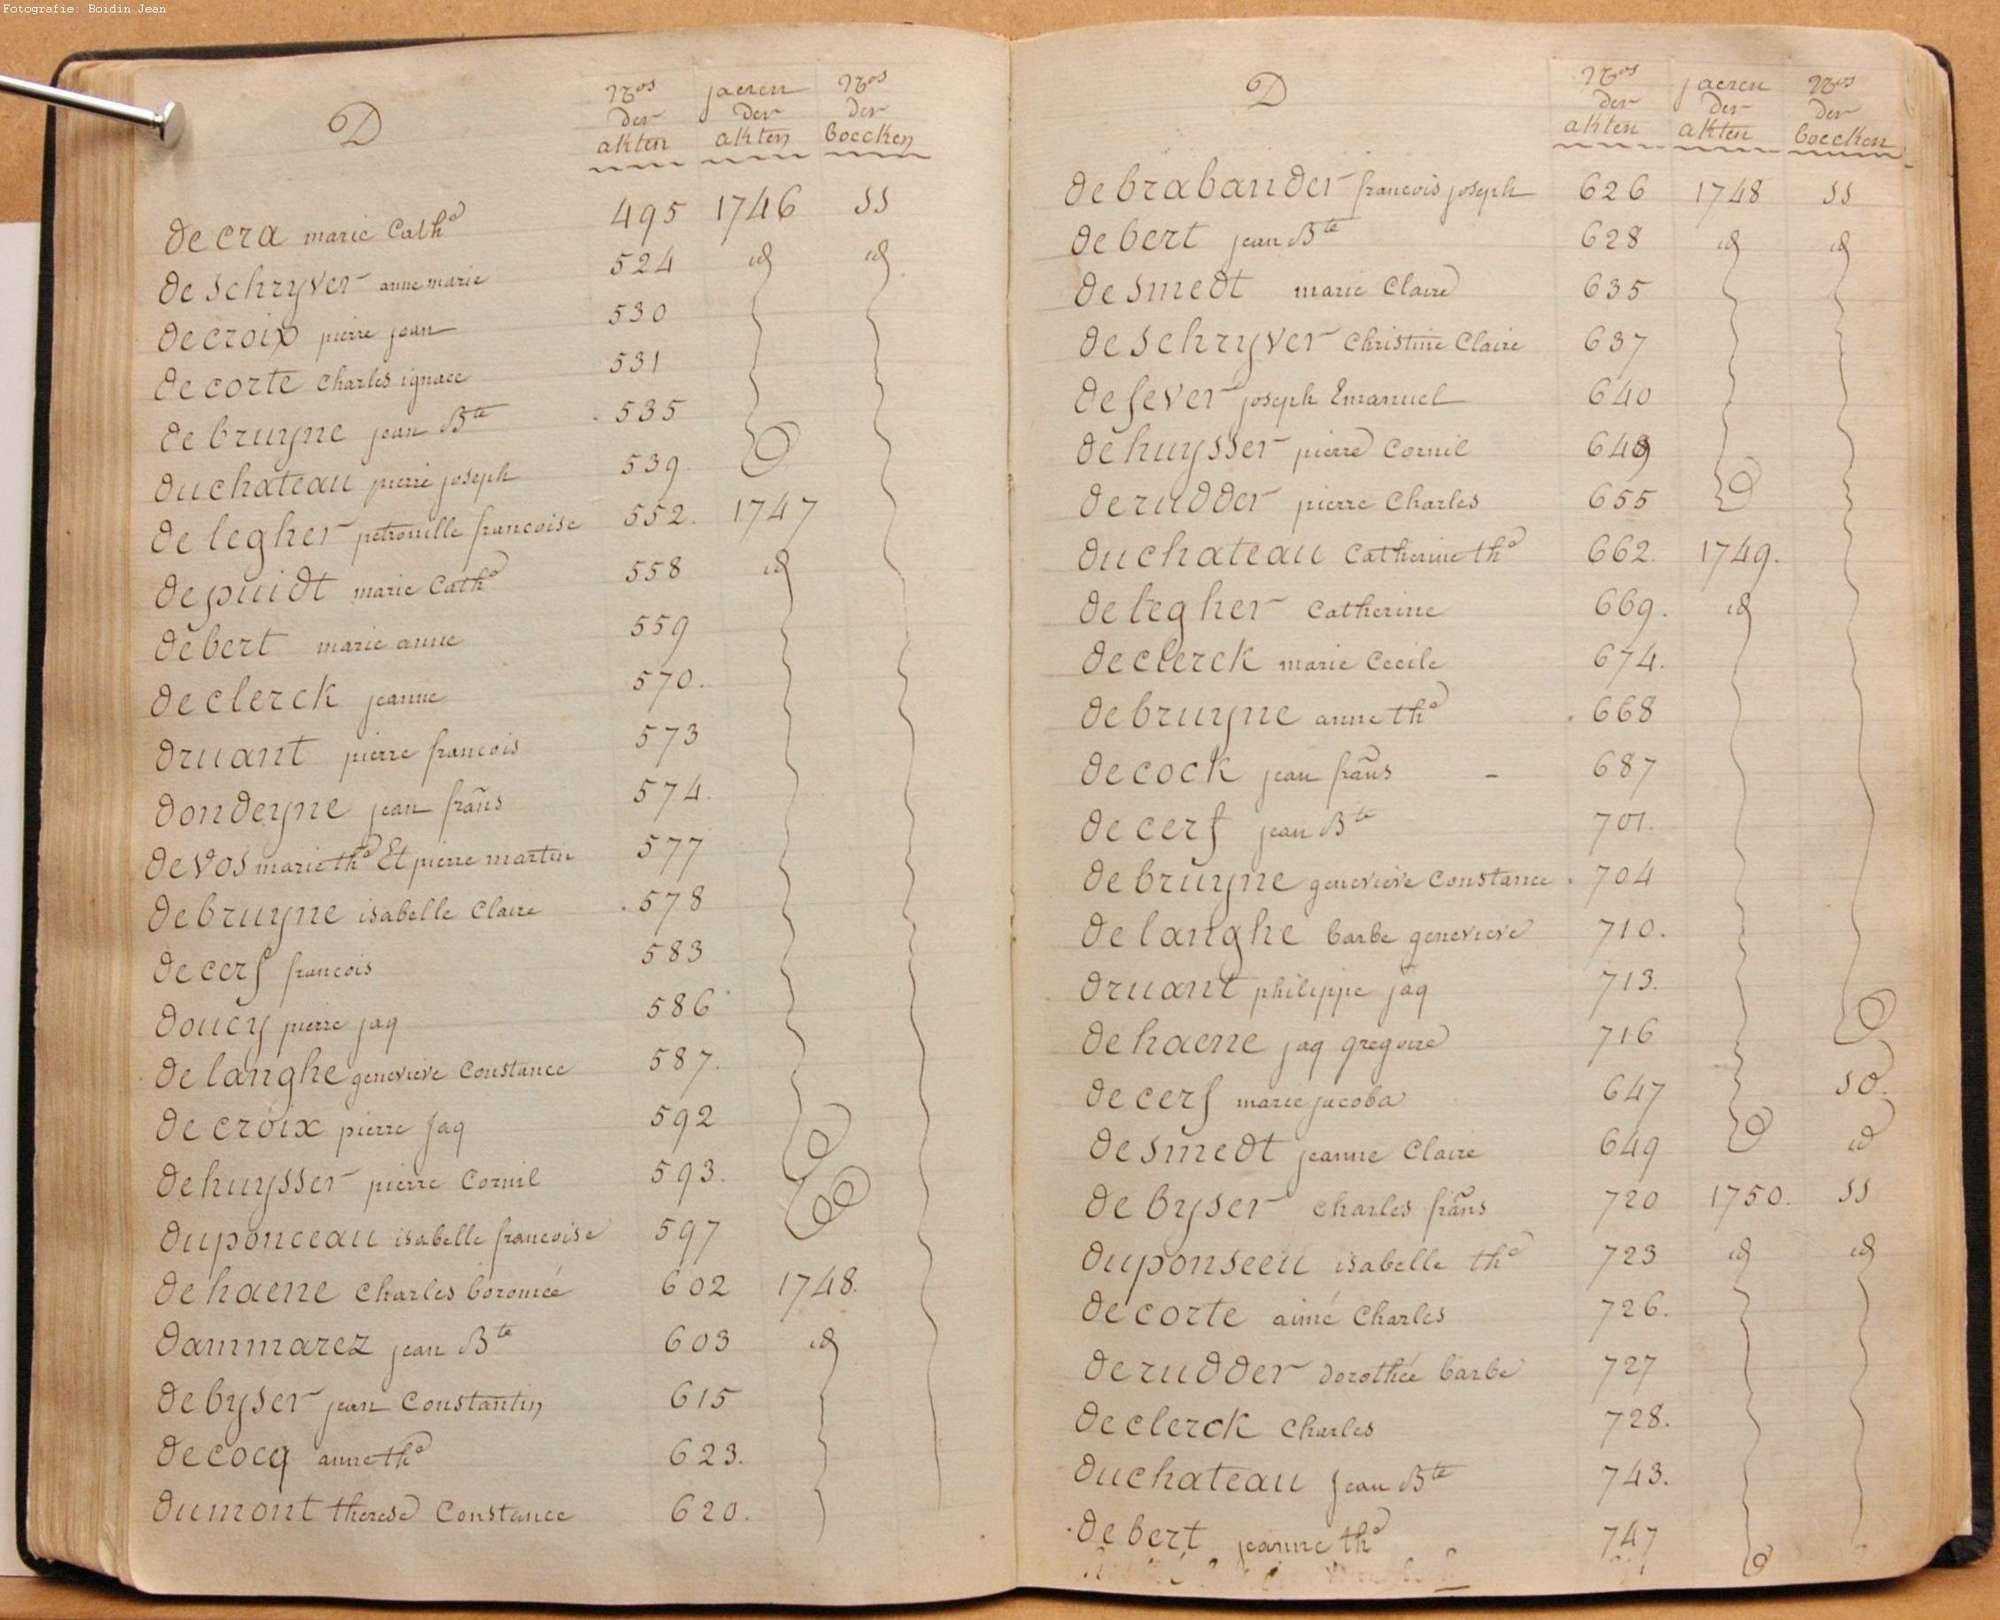 Fotografie: Boidin Jean
D
Nos der akten
jaeren der akten
Nos der boecken
de cra marie Catha 495 1746 SS
de schryver anne marie 524 id id
de croix pierre jean 530
de corte Charles ignace 531
de bruyne jean Bte 535
duchateau pierre joseph 539
de legher petronille francoise 552. 1747
de puidt marie Catha 558 id
de bert marie anne 559
de clerck jeanne 570.
druant pierre francois 573
dondeyne jean frañs 574.
de vos marie tha Et pierre martin 577
de bruyne isabelle Claire 578
de cerf francois 583
doucy pierre jaq 586
de langhe genevieve Constance 587.
de croix pierre Jaq 592
de huysser pierre Cornil 593.
duponceau isabelle francoise 597
de haene Charles boromée 602 1748.
dammarez jean Bte 603 id
de byser jean Constantin 615
de cocq anne tha 623.
dumont therese Constance 620.
D
Nos der akten
jaeren der akten
Nos der boecken
de brabander francois joseph 626 1748 SS
de bert jean Bte 628 id id
de smedt marie Claire 635
de schryver Christine Claire 637
de fever joseph Emanuel 640
de huysser pierre Cornil
de rudder pierre Charles 655
duchateau Catherine tha 662. 1749.
de legher Catherine 669. id
de clerck marie Cecile 674.
de bruyne anne tha 668
de cock jean frañs - 687
de cerf jean Bte 701.
de bruyne genevieve Constance 704
de langhe barbe genevieve 710.
druant philippe jaq 713.
de haene jaq gregoire 716
de cerf marie jacoba 647 SD.
de smedt jeanne Claire 649 id
de byser Charles frañs 720 1750. SS
duponseeu isabelle tha 723 id id
de corte aimé Charles 726.
de rudder dorothée barbe 727
de clerck Charles 728.
duchateau Jean Bte 743.
de bert jeanne tha 747